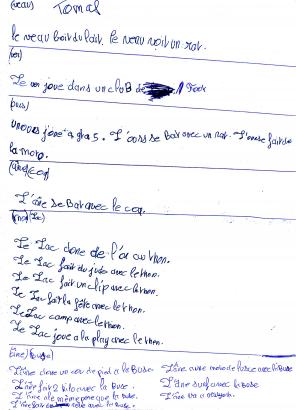 (veau) Tomal
le veau boit du lait. le veau voit un rat.
(ver)
Le ver joue dans un cluB de Foot
(ours)
un ours joue a gta 5. L'ours se Bat avec un rat. L'ourse fait de
la moto.
(âne)(coq)
L'âne se Bat avec le coq.
(thon)(lac)
Le Lac done de l'ai au thon.
Le Lac fait du judo avec le thon.
Le Lac fait un clip avec le thon.
Le Lac fait la fête avec le thon.
Le Lac camp avec le thon.
Le Lac joue a la play avec le thon.
(âne)(buse)
L'âne done un cou de pied a la Buse.
L'âne fait vélo avec la Buse.
L'âne de même pone que la buse.
L'âne fait avec la buse.
L'âne avec la Buse
L'âne surf avec la Buse.
L'âne va a